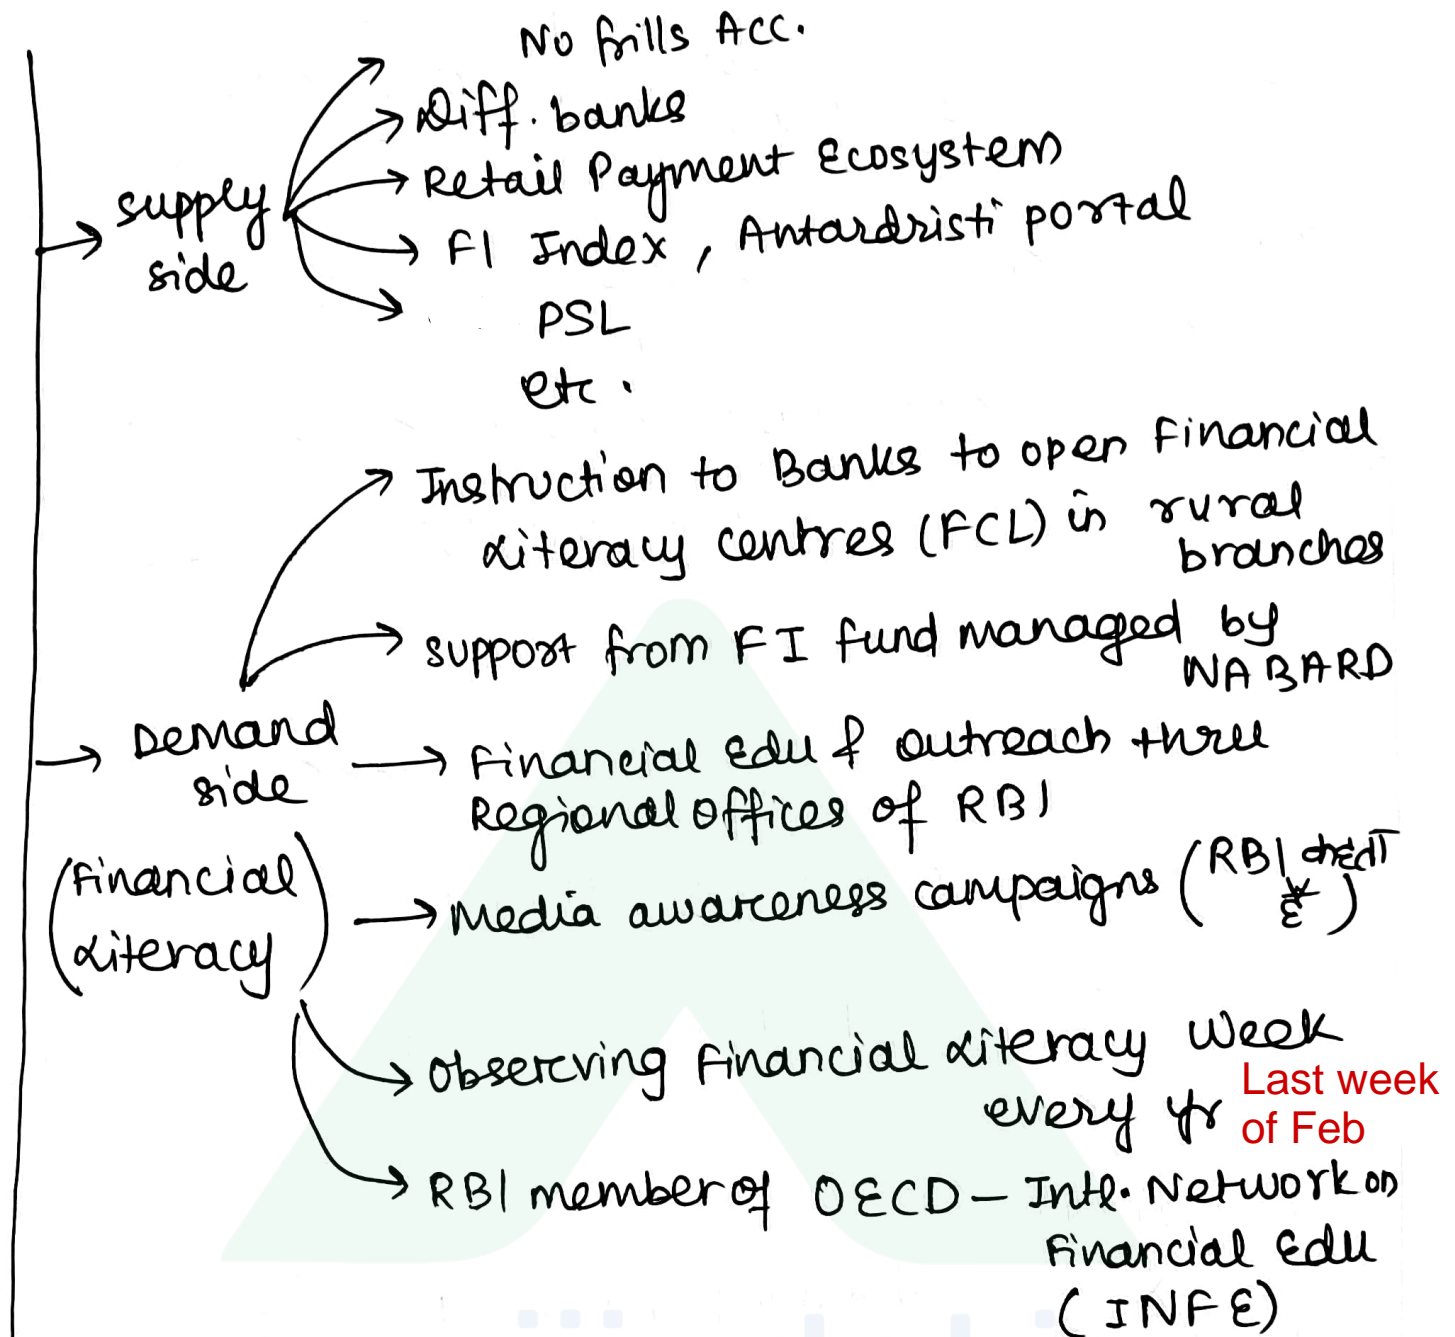 No frills Acc.
Diff. banks
Retail Payment Ecosystem
FI Index, Antardristi portal
PSL
etc.
Supply
side
Instruction to Banks to open Financial
Literacy centres (FCL) in rural
branches
support from FI fund managed by
NABARD
Demand
side
(Financial
Literacy)
Financial Edu & outreach thru
Regional offices of RBI
Media awareness campaigns (RBI कहता
है)
Observing Financial Literacy Week
every yr
Last week
of Feb
RBI member of OECD - Intl. Network on
Financial Edu
(INFE)